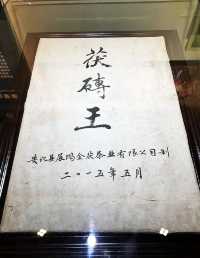 茯
磚
王
安化县晟鸿金茯茶业有限公司制
二〇一五年五月